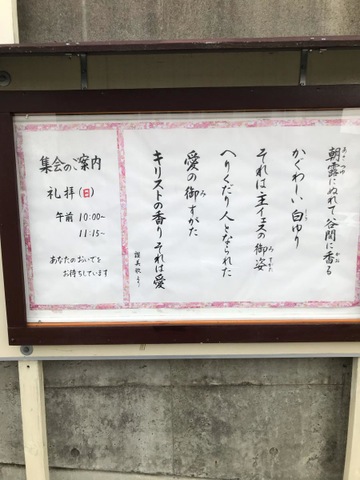 朝露にぬれて谷間に香る
かぐわーしい白ゆり
それは主イエスの御姿
へりくだり人となられた
愛の御すがた
キリストの香り それは愛
讃美歌より
集会のご案内
礼拝(日)
午前 10:00~
11:15~
あなたのおいでを
お待ちしています